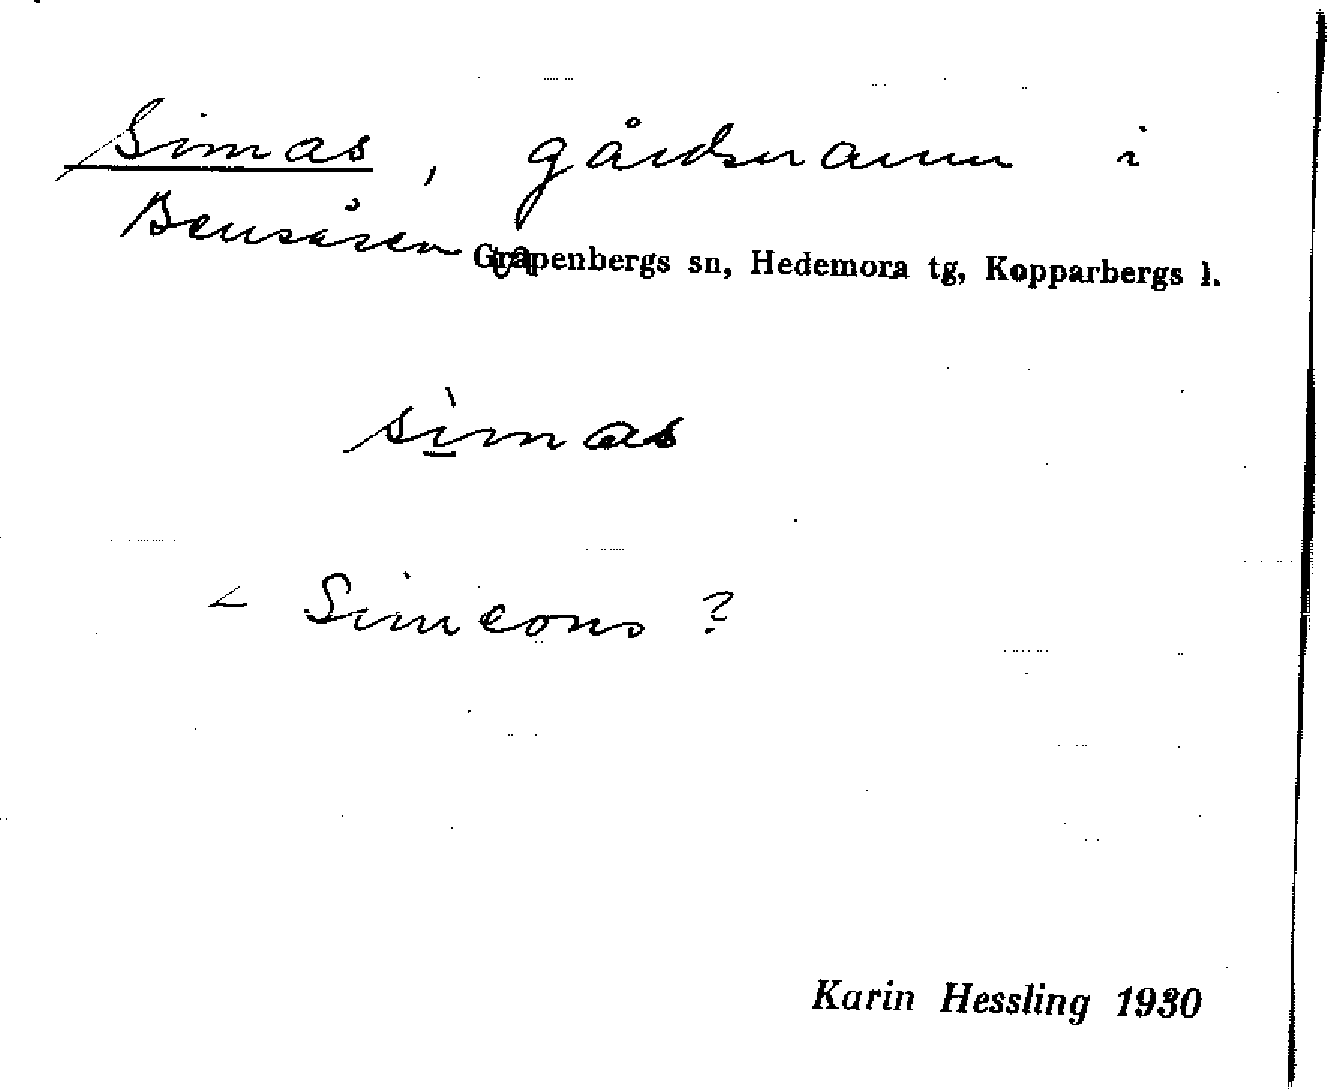 Simas, gårdsnamn i
Bensåren Garpenbergs sn, Hedemora tg, Kopparbergs l.
sìmas
< Simeons ?
Karin Hessling 1930